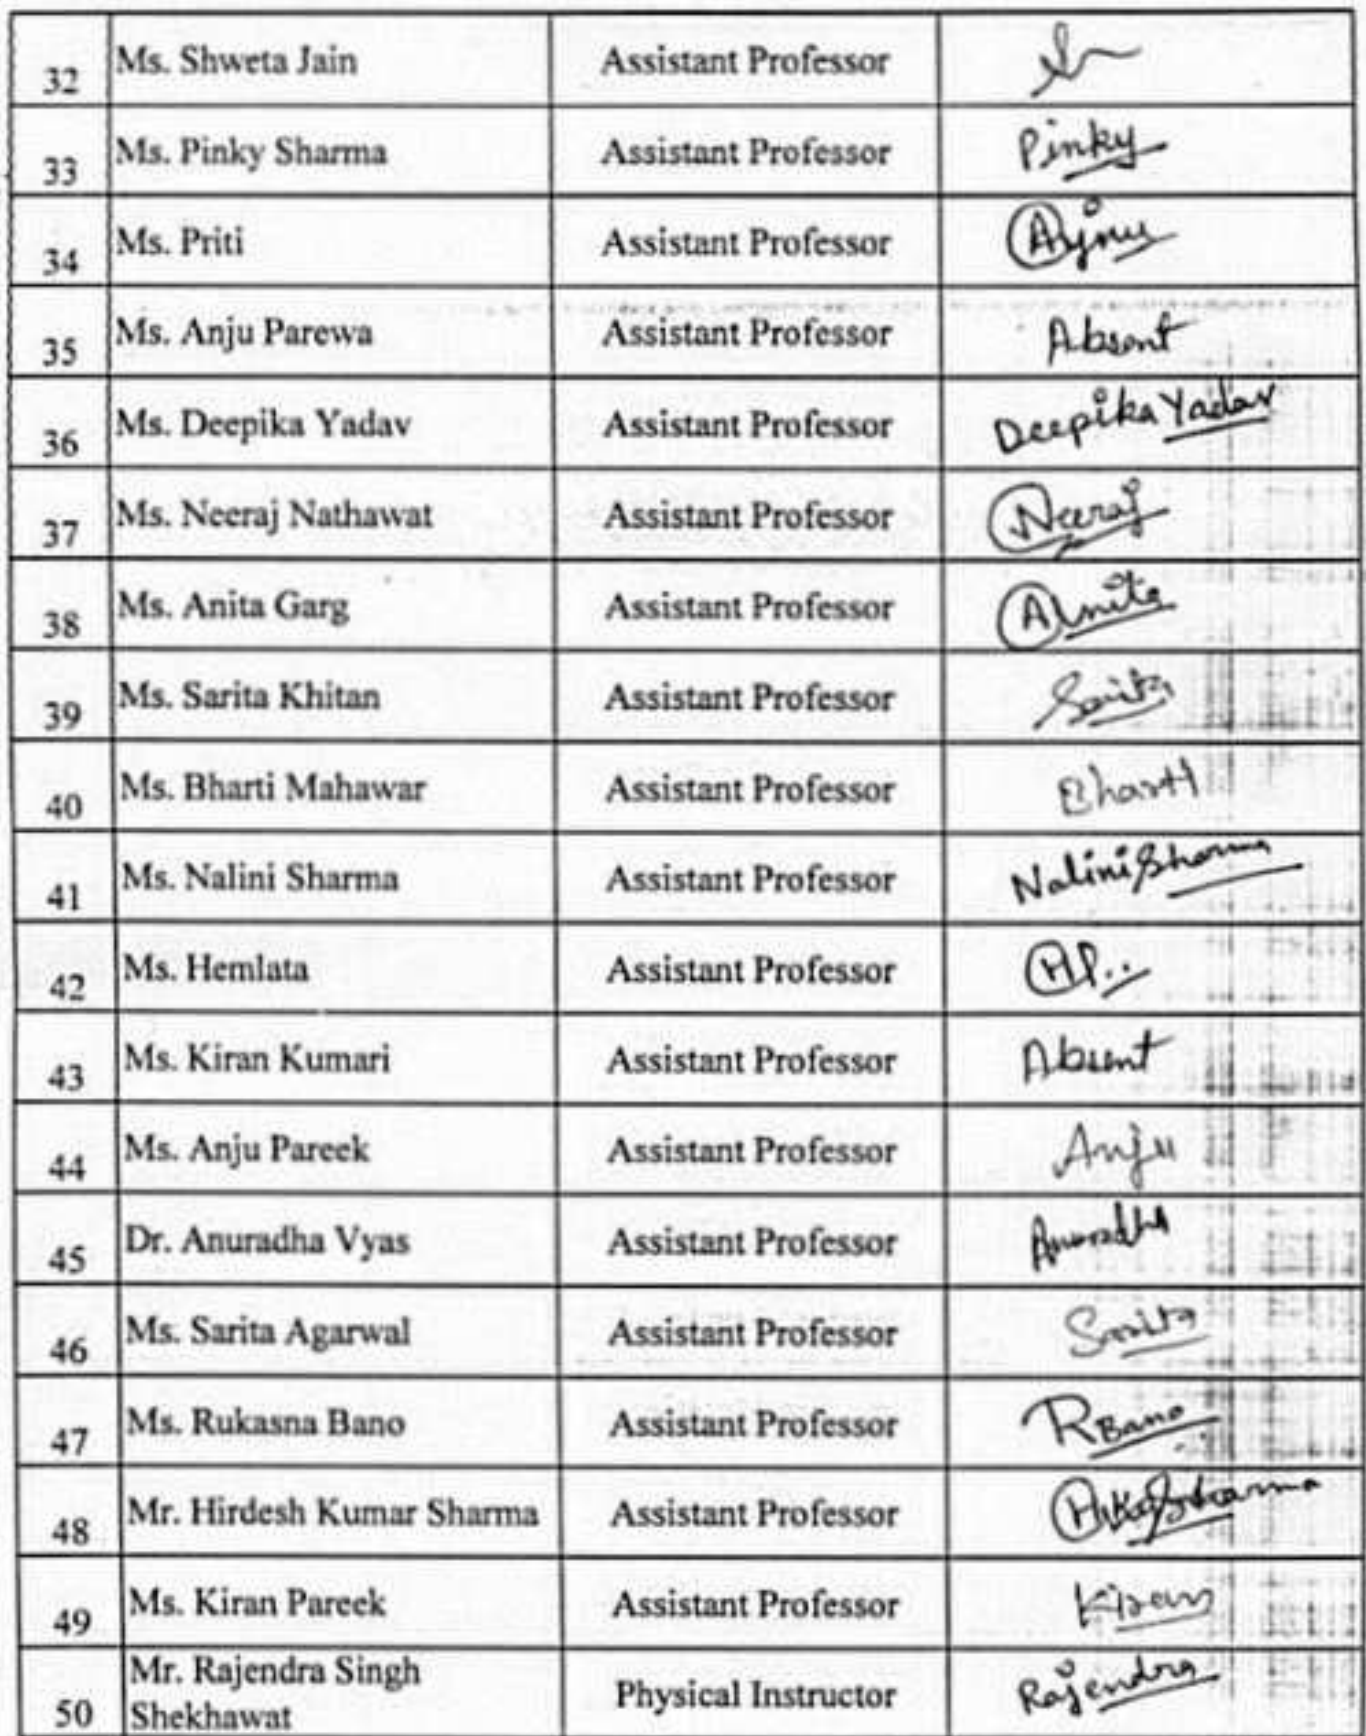 32 Ms. Shweta Jain Assistant Professor
33 Ms. Pinky Sharma Assistant Professor Pinky
34 Ms. Priti Assistant Professor
35 Ms. Anju Parewa Assistant Professor Absent
36 Ms. Deepika Yadav Assistant Professor Deepika Yadav
37 Ms. Neeraj Nathawat Assistant Professor Neeraj
38 Ms. Anita Garg Assistant Professor Anita
39 Ms. Sarita Khitan Assistant Professor Sarita
40 Ms. Bharti Mahawar Assistant Professor Bharti
41 Ms. Nalini Sharma Assistant Professor Nalini Sharma
42 Ms. Hemlata Assistant Professor
43 Ms. Kiran Kumari Assistant Professor Absent
44 Ms. Anju Pareek Assistant Professor Anju
45 Dr. Anuradha Vyas Assistant Professor Anuradha
46 Ms. Sarita Agarwal Assistant Professor Sarita
47 Ms. Rukasna Bano Assistant Professor RBano
48 Mr. Hirdesh Kumar Sharma Assistant Professor HKSharma
49 Ms. Kiran Pareek Assistant Professor Kiran
50 Mr. Rajendra Singh
Shekhawat Physical Instructor Rajendra